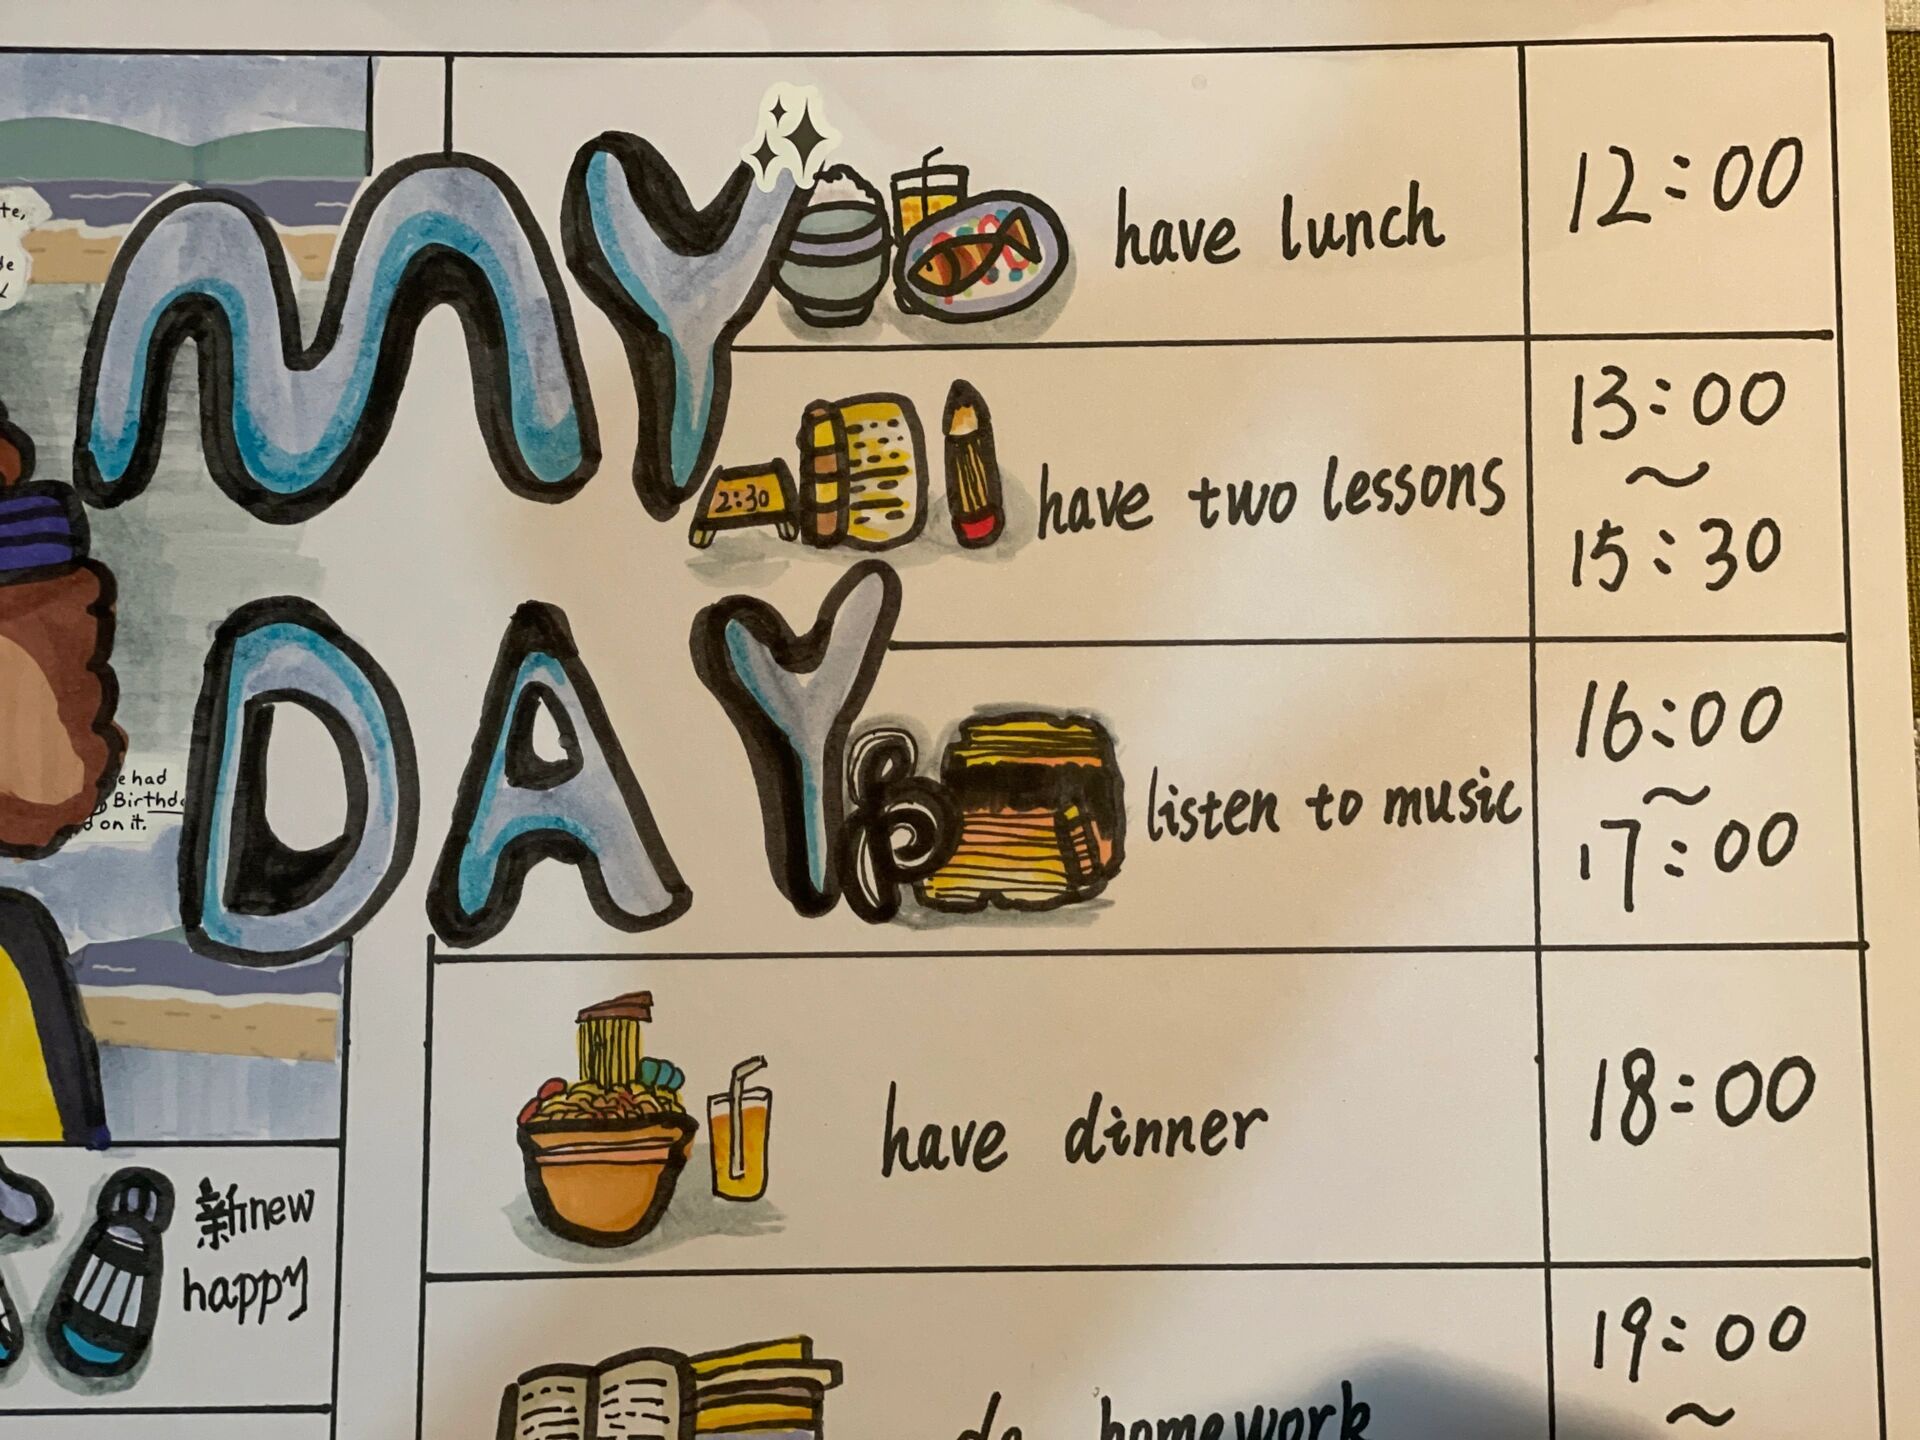 MY
DAY
have lunch
12:00
2:30
have two lessons
13:00
~
15:30
listen to music
16:00
~
17:00
have dinner
18:00
do homework
19:00
~
te,
de
e had
Birthda
on it.
新new
happy